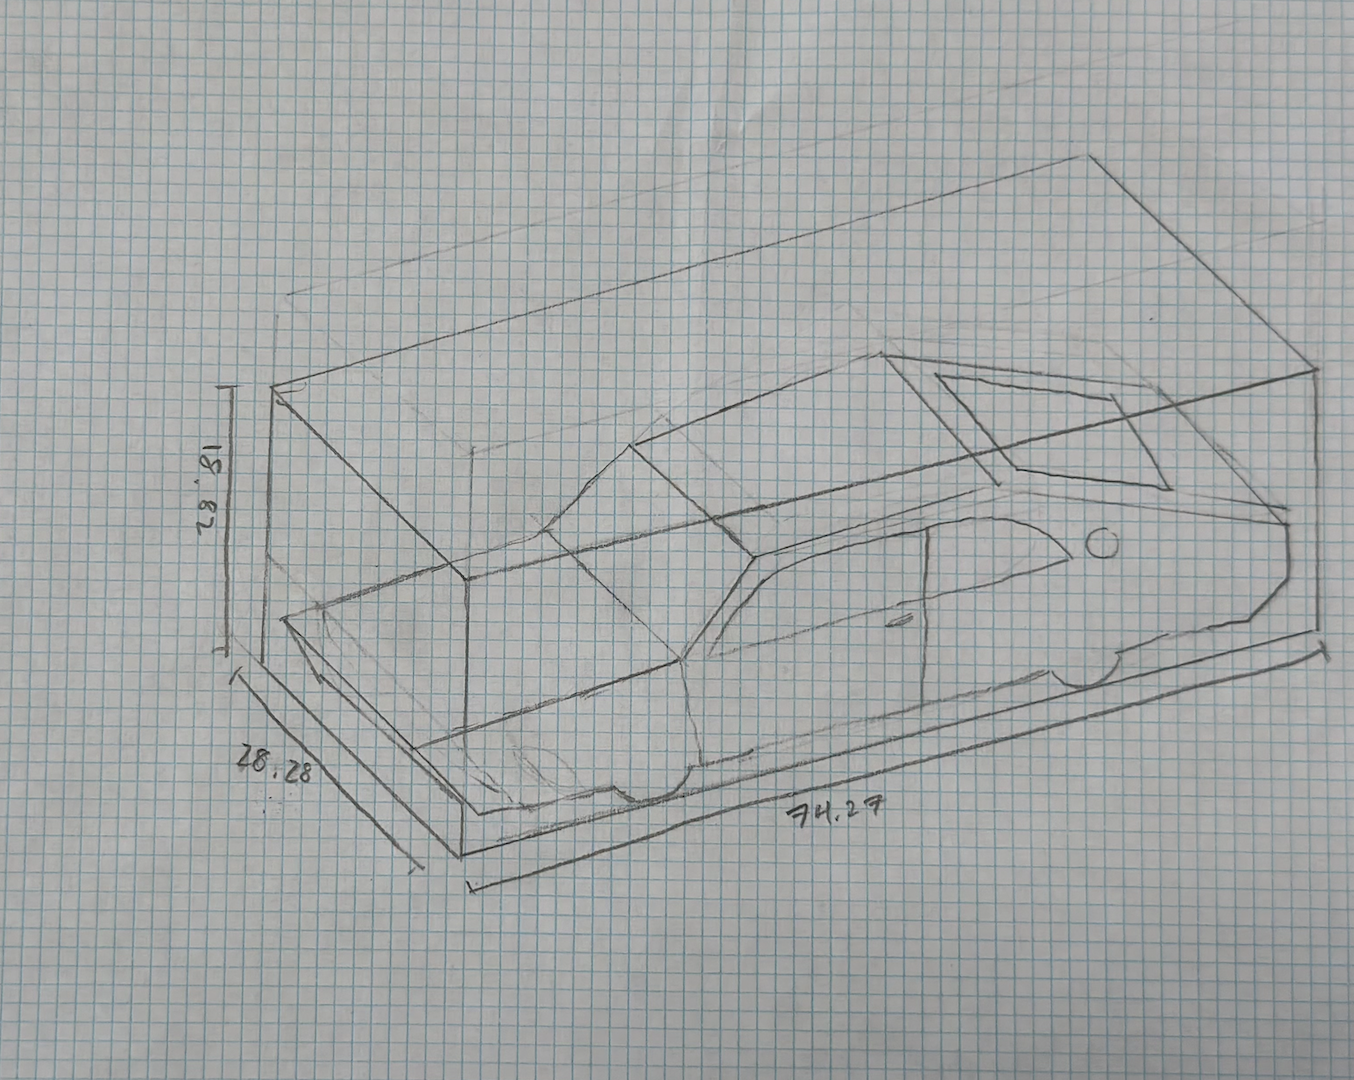 28.81
28.28
74.27